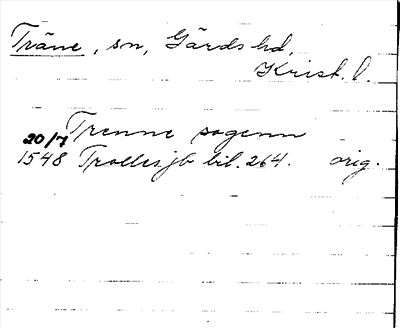 Träne, sn, Gärds hd,
Krist. l.
Trenne sogenn
20/7
1548 Trolles jb bil. 264. orig.